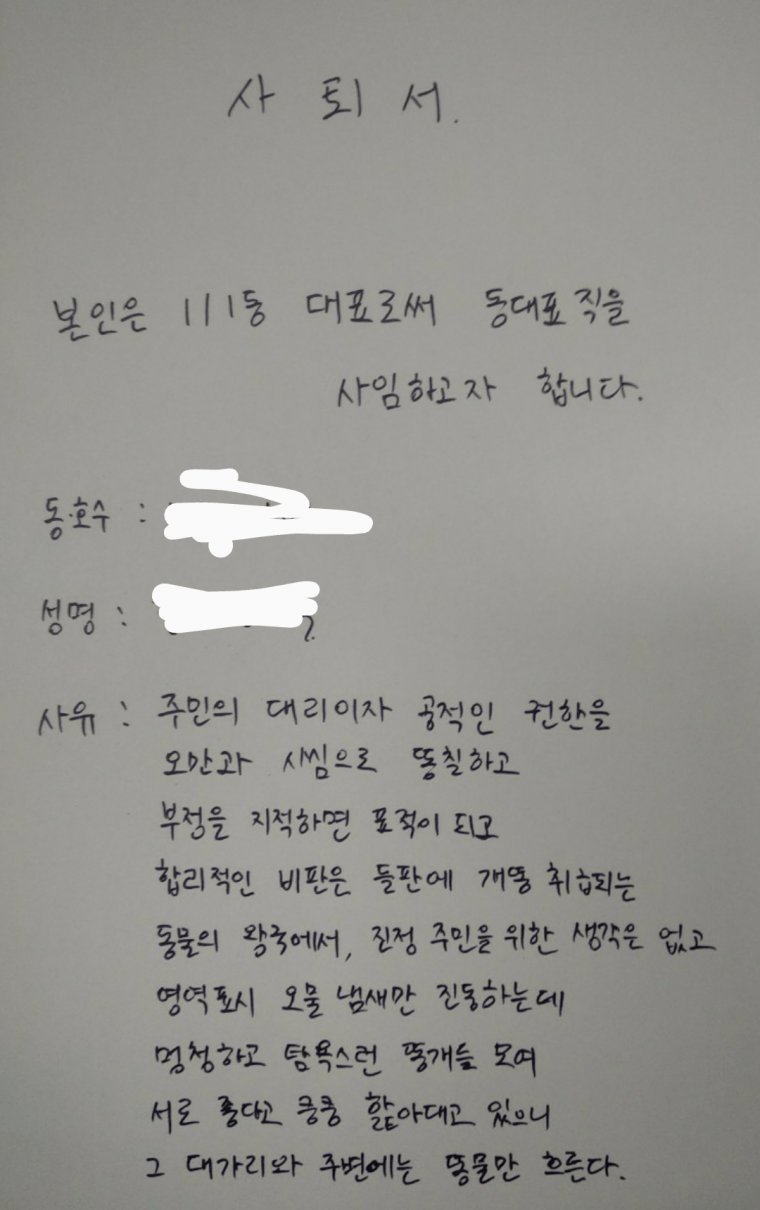 사 퇴 서.
본인은 111동 대표로써 동대표직을
사임하고자 합니다.
동·호수 :
성명 :
사유 : 주민의 대리이자 공적인 권한을
오만과 사심으로 똥칠하고
부정을 지적하면 표적이 되고
합리적인 비판은 들판에 개똥 취급되는
동물의 왕국에서, 진정 주민을 위한 생각은 없고
영역표시 오물 냄새만 진동하는데
멍청하고 탐욕스런 똥개들 모여
서로 좋다고 킁킁 핥아대고 있으니
그 대가리와 주변에는 똥물만 흐른다.